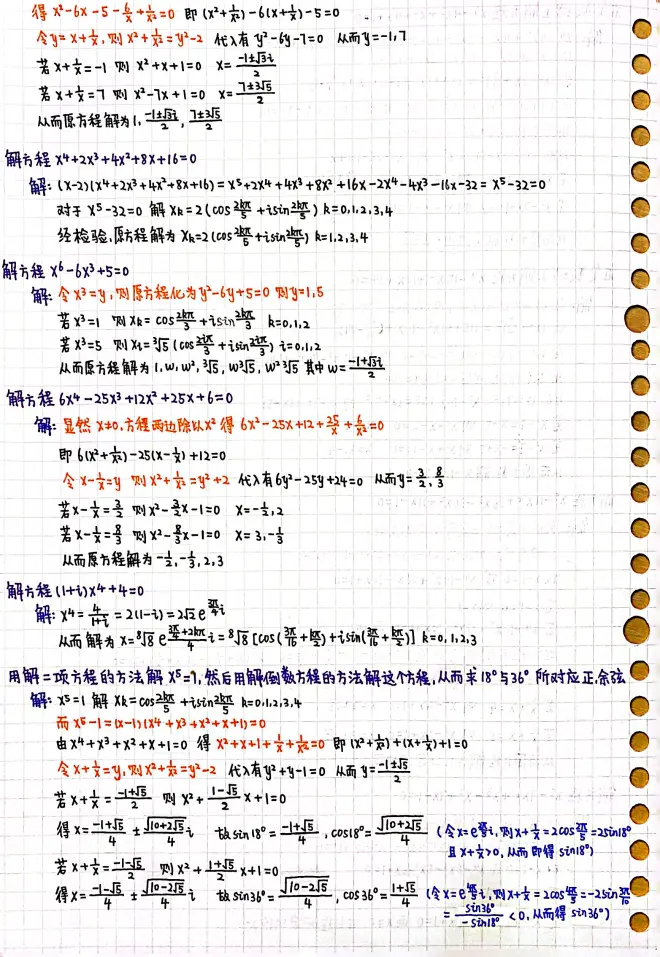 得 x²-6x-5-6/x+1/x²=0 即 (x²+1/x²)-6(x+1/x)-5=0
令y=x+1/x, 则 x²+1/x²=y²-2 代入有 y²-6y-7=0 从而y=-1,7
若 x+1/x=-1 则 x²+x+1=0 x=(-1±√3i)/2
若 x+1/x=7 则 x²-7x+1=0 x=(7±3√5)/2
从而原方程解为 1, (-1±√3i)/2, (7±3√5)/2
解方程 x⁴+2x³+4x²+8x+16=0
解: (x-2)(x⁴+2x³+4x²+8x+16)=x⁵+2x⁴+4x³+8x²+16x-2x⁴-4x³-16x-32=x⁵-32=0
对于 x⁵-32=0 解 xₖ=2(cos 2kπ/5 + i sin 2kπ/5) k=0,1,2,3,4
经检验,原方程解为 xₖ=2(cos 2kπ/5 + i sin 2kπ/5) k=1,2,3,4
解方程 x⁶-6x³+5=0
解: 令 x³=y, 则原方程化为 y²-6y+5=0 则y=1,5
若 x³=1 则 xₖ=cos 2kπ/3 + i sin 2kπ/3 k=0,1,2
若 x³=5 则 xᵢ=³√5 (cos 2iπ/3 + i sin 2iπ/3) i=0,1,2
从而原方程解为 1, w, w², ³√5, w³√5, w²³√5 其中 w=(-1+√3i)/2
解方程 6x⁴-25x³+12x²+25x+6=0
解: 显然 x≠0, 方程两边除以x² 得 6x²-25x+12+25/x+6/x²=0
即 6(x²+1/x²)-25(x-1/x)+12=0
令 x-1/x=y 则x²+1/x²=y²+2 代入有6y²-25y+24=0 从而y=3/2, 8/3
若x-1/x=3/2 则 x²-3/2x-1=0 x=-1/2,2
若x-1/x=8/3 则 x²-8/3x-1=0 x=3,-1/3
从而原方程解为 -1/2,-1/3,2,3
解方程 (1+i)x⁴+4=0
解: x⁴=4/(1+i)=2(1-i)=2√2 e^(3π/4 i)
从而 解为 x=⁸√8 e^((3π/4+2kπ)/4 i)=⁸√8 [cos(3π/16+kπ/2)+i sin(3π/16+kπ/2)] k=0,1,2,3
用解二项方程的方法解 x⁵=1, 然后用解倒数方程的方法解这个方程, 从而求18°与36°所对应正、余弦
解: x⁵=1 解 xₖ=cos 2kπ/5 + i sin 2kπ/5 k=0,1,2,3,4
而 x⁵-1=(x-1)(x⁴+x³+x²+x+1)=0
由 x⁴+x³+x²+x+1=0 得 x²+x+1+1/x+1/x²=0 即 (x²+1/x²)+(x+1/x)+1=0
令 x+1/x=y, 则x²+1/x²=y²-2 代入有 y²+y-1=0 从而 y=(-1±√5)/2
若 x+1/x=(-1+√5)/2 则 x²+(1-√5)/2 x+1=0
得 x=(-1+√5)/4 ± √(10+2√5)/4 i 故 sin18°=(-1+√5)/4, cos18°=√(10+2√5)/4 (令x=e^(2π/5 i), 则x+1/x=2cos 2π/5=2sin18°
且 x+1/x>0, 从而 即得 sin18°)
若 x+1/x=(-1-√5)/2 则 x²+(1+√5)/2 x+1=0
得 x=(-1-√5)/4 ± √(10-2√5)/4 i 故 sin36°=√(10-2√5)/4, cos36°=(1+√5)/4 (令x=e^(4π/5 i), 则x+1/x=2cos 4π/5=-2sin 3π/10
=sin36°/-sin18°<0, 从而得 sin36°)